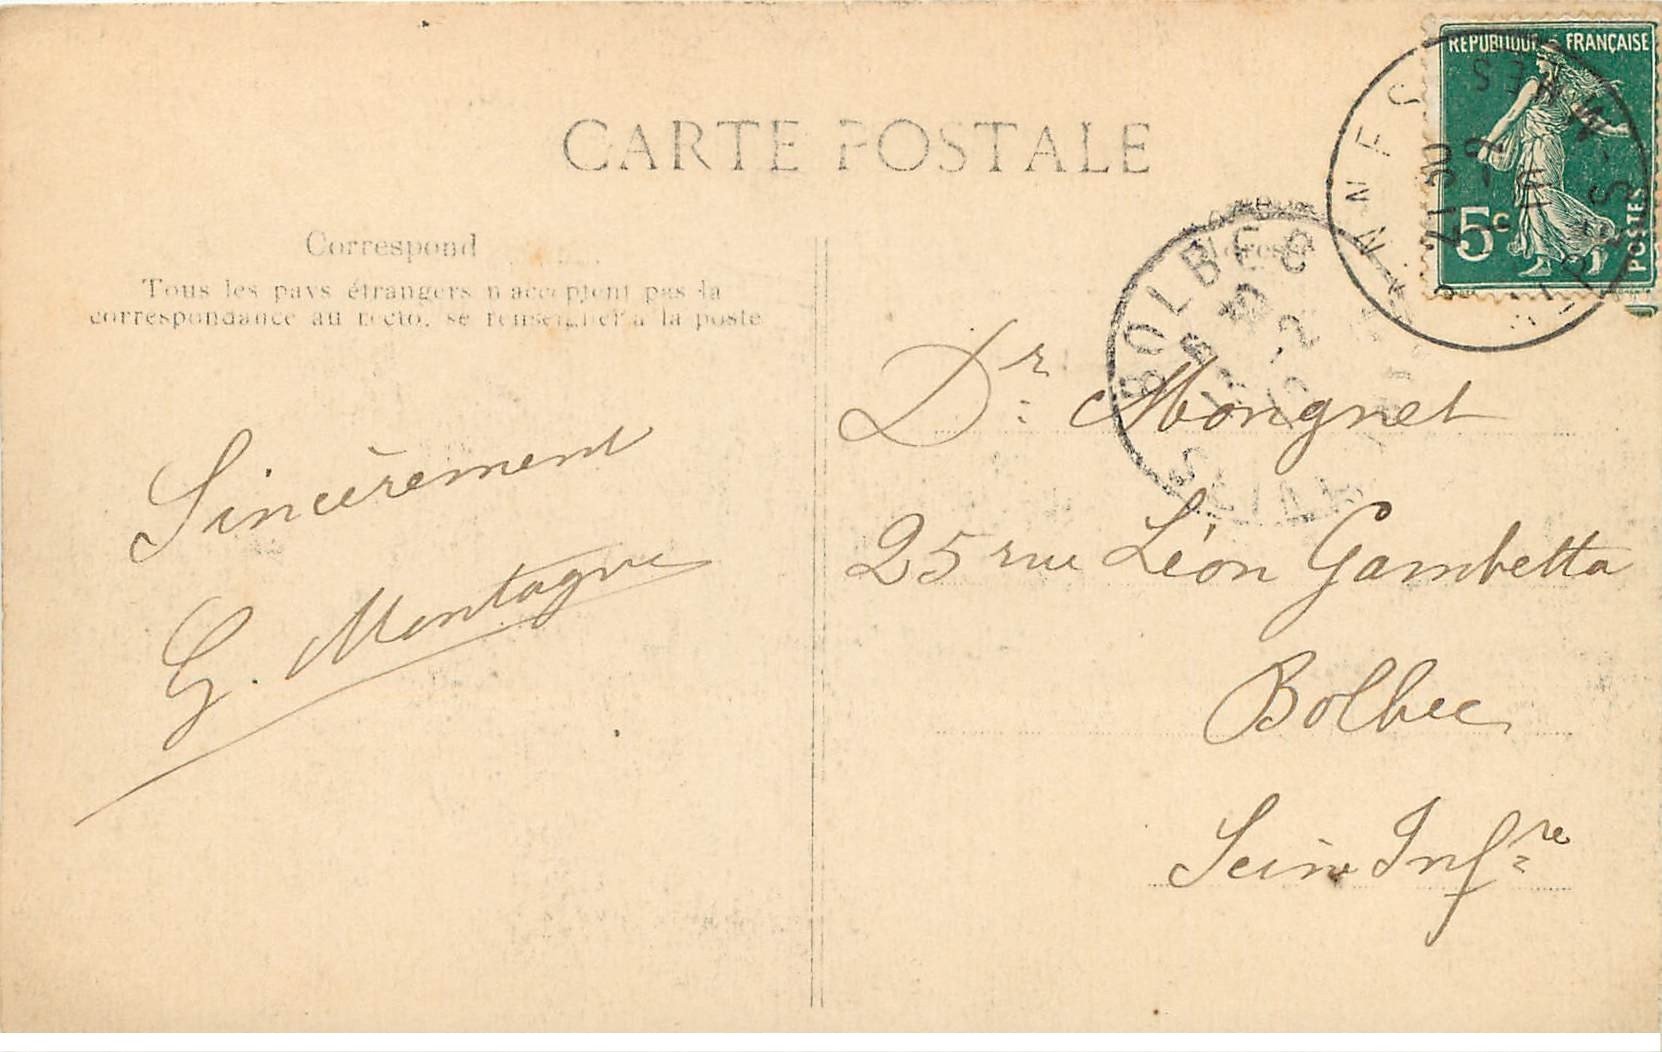 CARTE POSTALE
Correspond
Tous les pays étrangers n'acceptent pas la
correspondance au recto, se renseigner à la poste
Sincèrement
G. Montagne
REPUBLIQUE FRANÇAISE
5c
POSTES
BOLBEC
Dr Mongnet
25 rue Léon Gambetta
Bolbec
Seine Infre